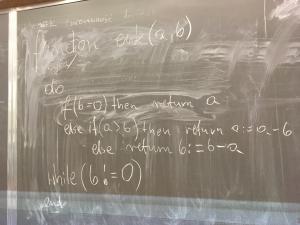 function eukl(a,b)
do
if(b=0) then return a
else if(a>b) then return a:=a-b
else return b:=b-a
while(b!=0)
end